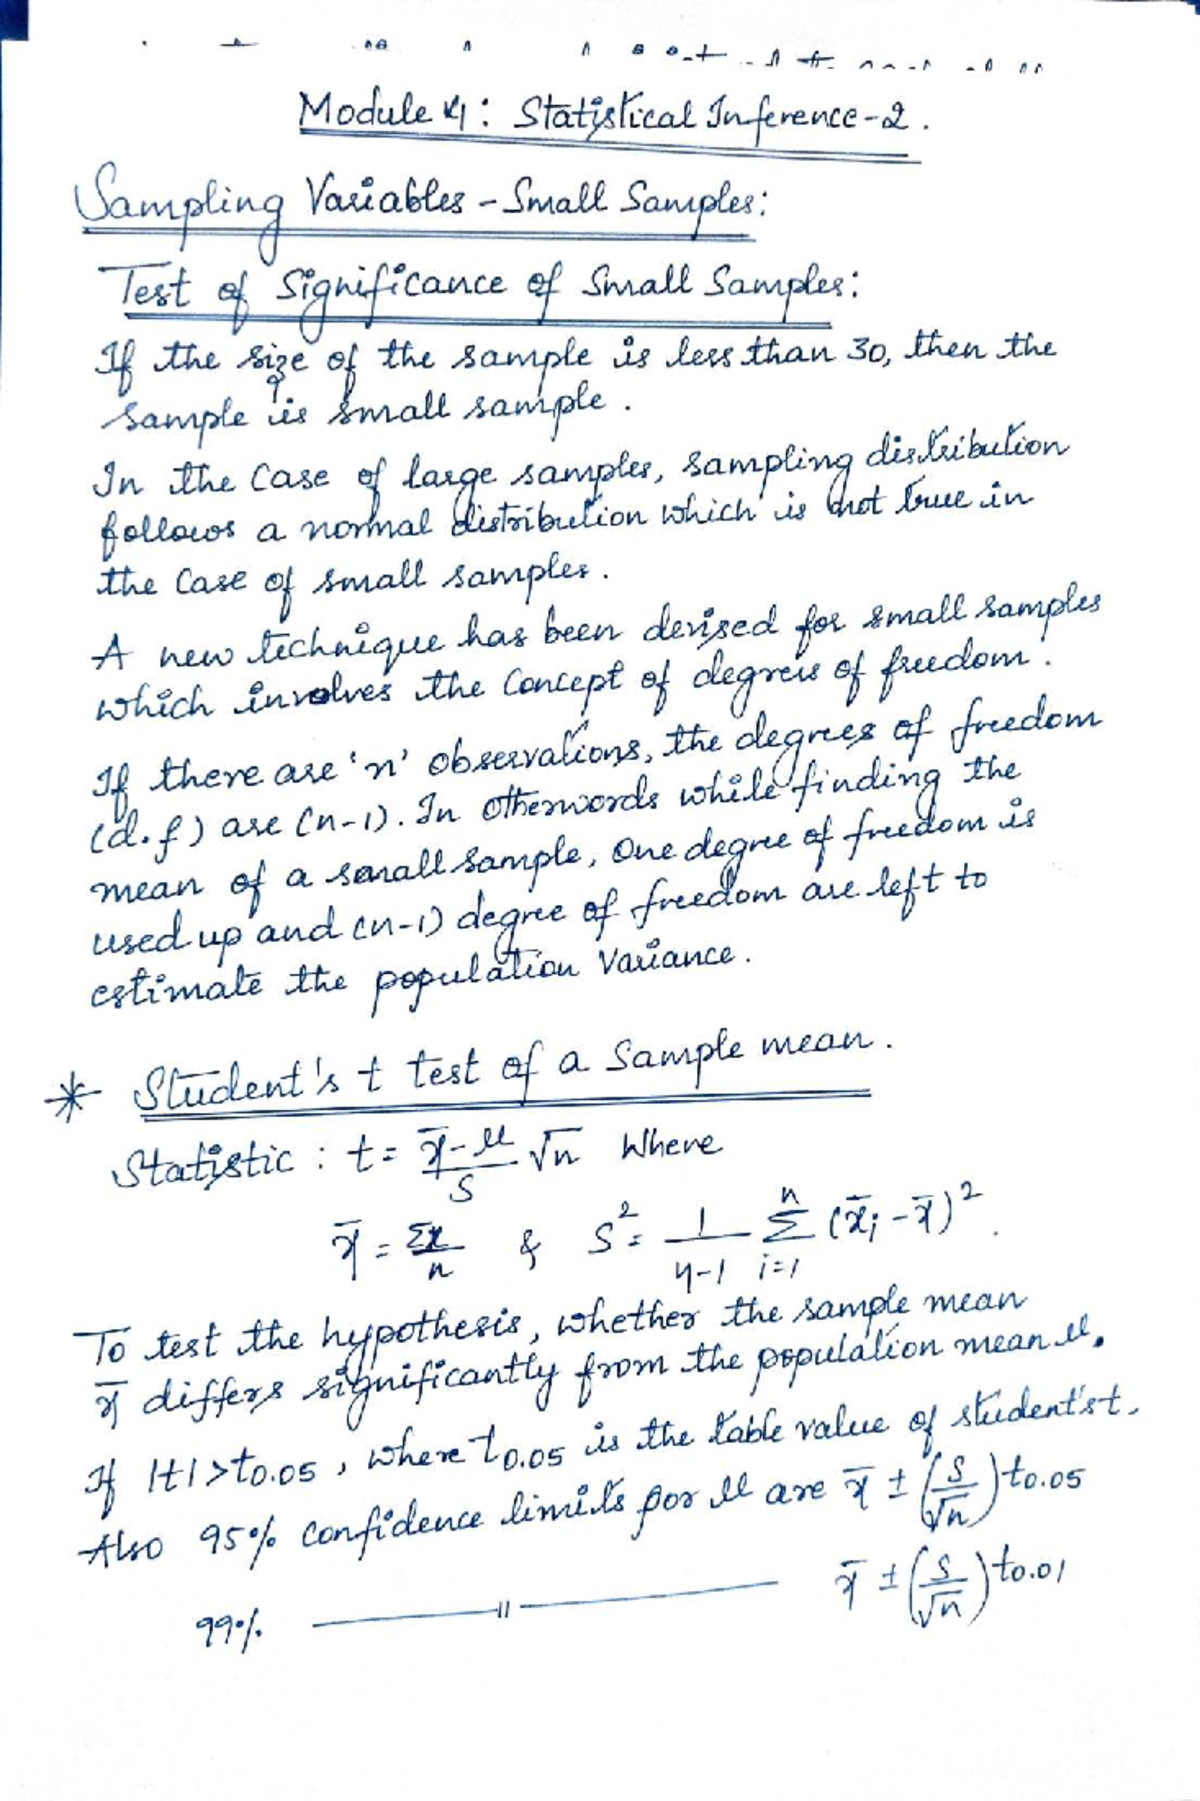 Module 4: Statistical Inference-2.
Sampling Variables - Small Samples:
Test of Significance of Small Samples:
If the size of the sample is less than 30, then the
sample is small sample.
In the Case of large samples, sampling distribution
follows a normal distribution which is not true in
the Case of small samples.
A new technique has been devised for small samples
which involves the Concept of degrees of freedom.
If there are 'n' observations, the degrees of freedom
(d.f) are (n-1). In otherwords while finding the
mean of a small sample, One degree of freedom is
used up and (n-1) degree of freedom are left to
estimate the population Variance.
* Student's t test of a Sample mean.
Statistic : t = (x̄ - μ)/S √n Where
x̄ = Σx/n & S² = 1/(n-1) Σ_{i=1}^{n} (x̄ᵢ - x̄)².
To test the hypothesis, whether the sample mean
x̄ differs significantly from the population mean μ.
If |t| > t0.05, where t0.05 is the table value of student'st.
Also 95% Confidence limits for μ are x̄ ± (S/√n) t0.05
99% —— 11 —— x̄ ± (S/√n) t0.01